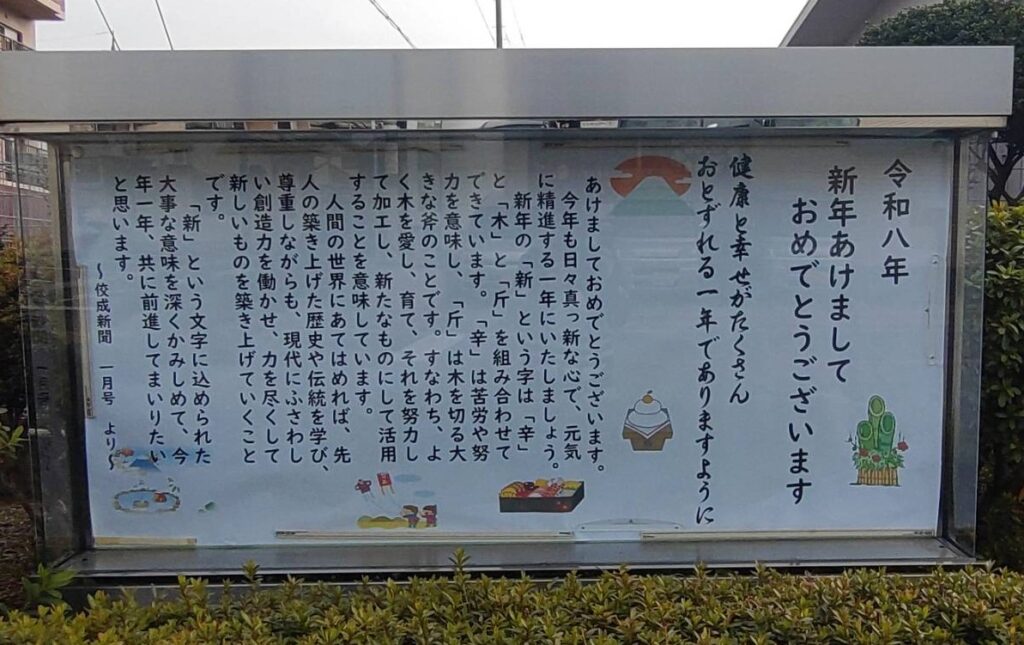 令和八年
新年あけまして
おめでとうございます
健康と幸せがたくさん
おとずれる一年でありますように
あけましておめでとうございます。
今年も日々真っ新な心で、元気
に精進する一年にいたしましょう。
新年の「新」という字は「辛」
と「木」と「斤」を組み合わせて
できています。「辛」は苦労や努
力を意味し、「斤」は木を切る大
きな斧のことです。すなわち、よ
く木を愛し、育て、それを努力し
て加工し、新たなものにして活用
することを意味しています。
人間の世界にあてはめれば、先
人の築き上げた歴史や伝統を学び、
尊重しながらも、現代にふさわし
い創造力を働かせ、力を尽くして
新しいものを築き上げていくこと
です。
「新」という文字に込められた
大事な意味を深くかみしめて、今
年一年、共に前進してまいりたい
と思います。
～佼成新聞 一月号 より～